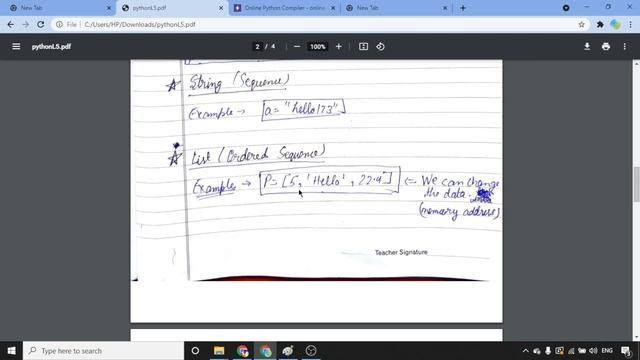 New Tab
pythonL5.pdf
Online Python Compiler - online
New Tab
File | C:/Users/HP/Downloads/pythonL5.pdf
pythonL5.pdf
2 / 4
100%
String (Sequence)
Example → a = "hello123"
List (Ordered Sequence)
Example → P = [5, 'Hello', 22.4] ← We can change
the data.
(memory address)
Teacher Signature
ENG